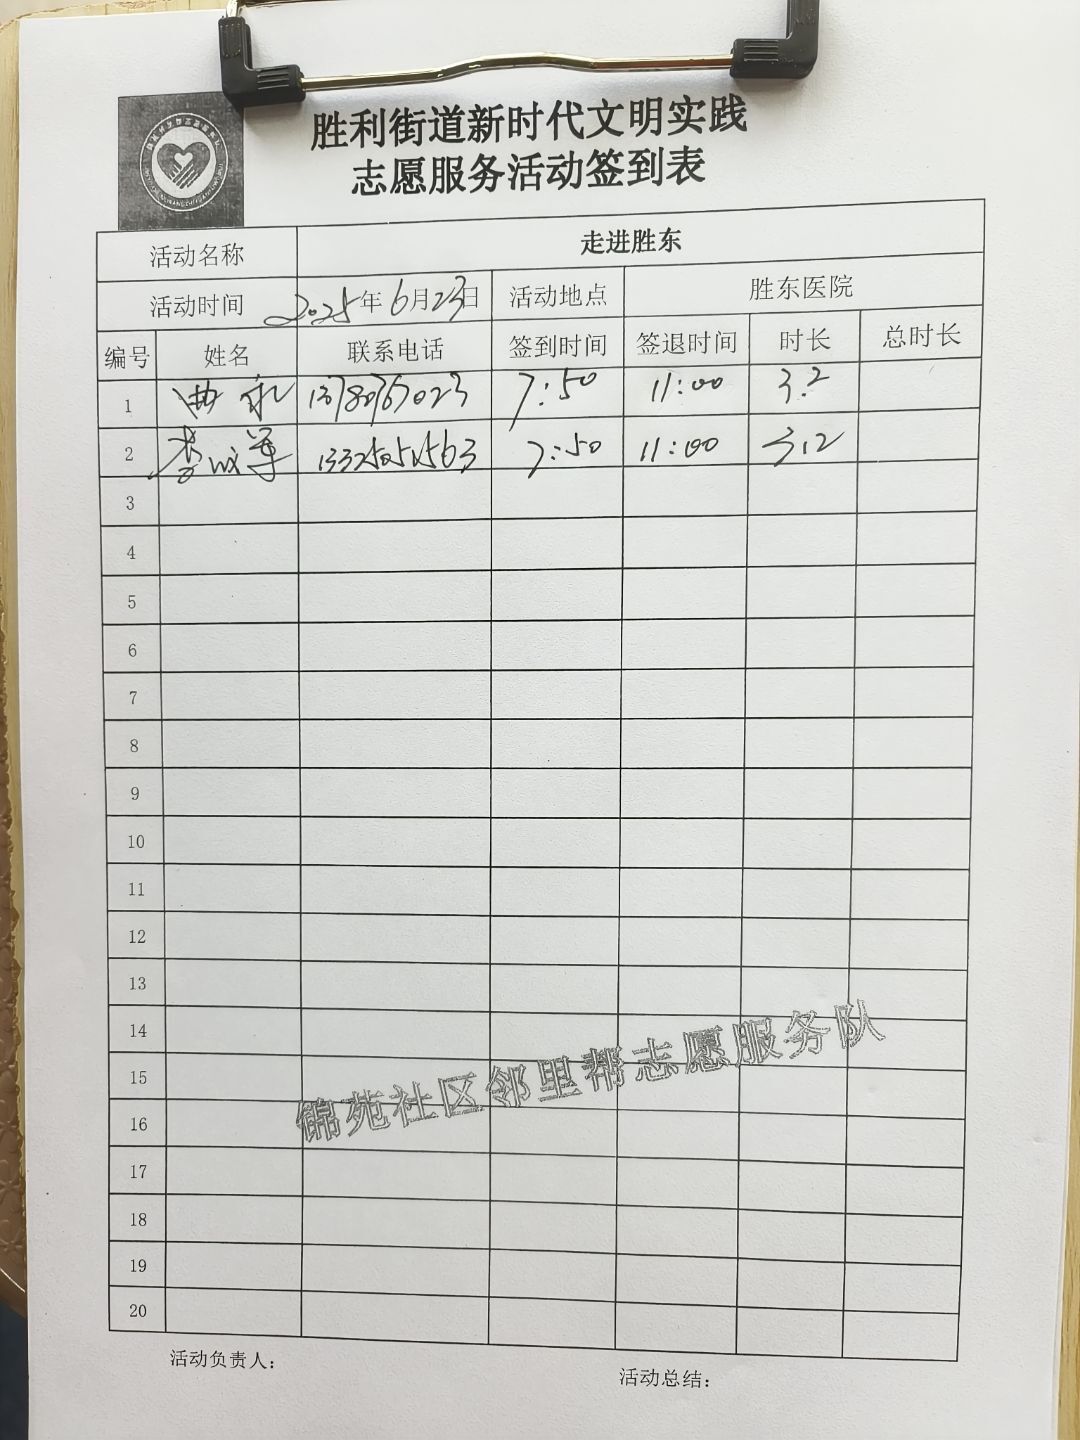 胜利街道新时代文明实践
志愿服务活动签到表
活动名称 走进胜东
活动时间 2025年6月23日 活动地点 胜东医院
编号 姓名 联系电话 签到时间 签退时间 时长 总时长
1 7:50 11:00 3.2
2 7:50 11:00 3.2
3
4
5
6
7
8
9
10
11
12
13
14
15
16
17
18
19
20
锦苑社区邻里帮志愿服务队
活动负责人：
活动总结：